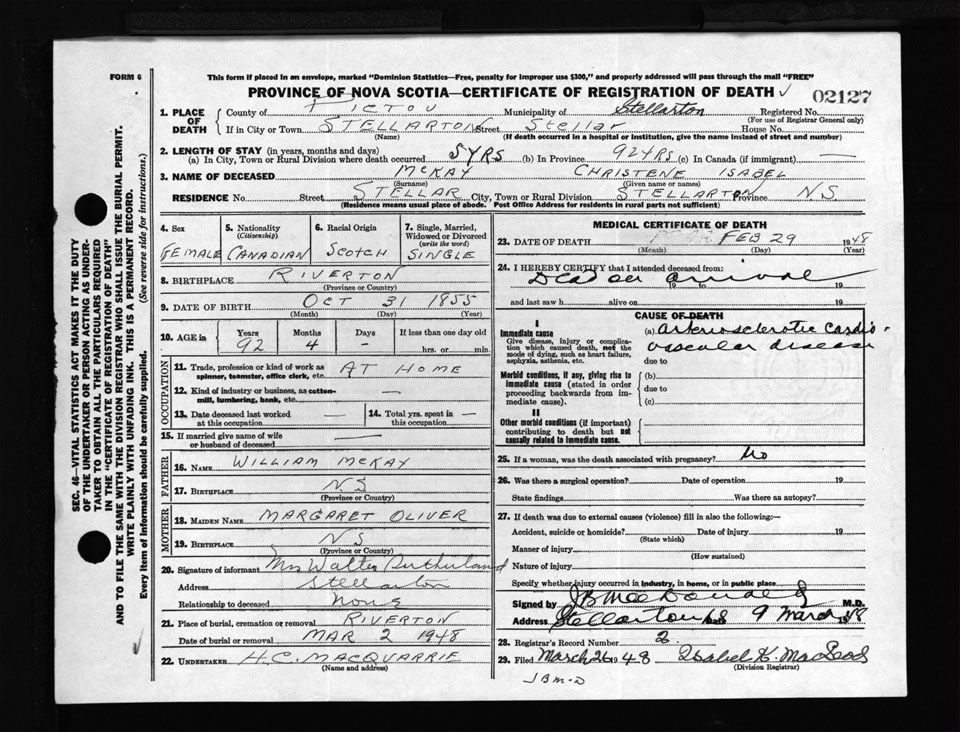 FORM 6
This form if placed in an envelope, marked "Dominion Statistics—Free, penalty for improper use $300," and properly addressed will pass through the mail "FREE"
PROVINCE OF NOVA SCOTIA—CERTIFICATE OF REGISTRATION OF DEATH
02127
1. PLACE OF DEATH
County of PICTOU Municipality of Stellarton Registered No.
(For use of Registrar General only)
If in City or Town STELLARTON Street Stellar House No.
(Name) (If death occurred in a hospital or institution, give the name instead of street and number)
2. LENGTH OF STAY (in years, months and days)
(a) In City, Town or Rural Division where death occurred 5 YRS (b) In Province 92 YRS (c) In Canada (if immigrant) —
3. NAME OF DECEASED MCKAY CHRISTENE ISABEL
(Surname) (Given name or names)
RESIDENCE No. Street STELLAR City, Town or Rural Division STELLARTON Province N.S.
(Residence means usual place of abode. Post Office Address for residents in rural parts not sufficient)
4. Sex FEMALE
5. Nationality (Citizenship) CANADIAN
6. Racial Origin SCOTCH
7. Single, Married, Widowed or Divorced (write the word) SINGLE
8. BIRTHPLACE RIVERTON
(Province or Country)
9. DATE OF BIRTH OCT 31 1855
(Month) (Day) (Year)
10. AGE in Years Months Days If less than one day old
92 4 - hrs. or min.
OCCUPATION
11. Trade, profession or kind of work as spinner, teamster, office clerk, etc. AT HOME
12. Kind of industry or business, as cotton-mill, lumbering, bank, etc. —
13. Date deceased last worked at this occupation —
14. Total yrs. spent in this occupation —
15. If married give name of wife or husband of deceased —
FATHER
16. NAME WILLIAM MCKAY
17. BIRTHPLACE N.S
(Province or Country)
MOTHER
18. MAIDEN NAME MARGARET OLIVER
19. BIRTHPLACE NS
(Province or Country)
20. Signature of informant Mrs Walter Sutherland
Address Stellarton
Relationship to deceased None
21. Place of burial, cremation or removal RIVERTON
Date of burial or removal MAR 2 1948
22. UNDERTAKER H.C. MACQUARRIE
(Name and address)
MEDICAL CERTIFICATE OF DEATH
23. DATE OF DEATH FEB 29 1948
(Month) (Day) (Year)
24. I HEREBY CERTIFY that I attended deceased from:
Dead on arrival 19 to 19
and last saw h alive on 19
CAUSE OF DEATH
I
Immediate cause (a) Arteriosclerotic Cardio-
Give disease, injury or complication which caused death, not the mode of dying, such as heart failure, asphyxia, asthenia, etc.
vascular disease
due to
Morbid conditions, if any, giving rise to immediate cause (stated in order proceeding backwards from immediate cause).
(b)
due to
(c)
II
Other morbid conditions (if important) contributing to death but not causally related to immediate cause.
25. If a woman, was the death associated with pregnancy? No
26. Was there a surgical operation? Date of operation 19
State findings Was there an autopsy?
27. If death was due to external causes (violence) fill in also the following—
Accident, suicide or homicide? Date of injury 19
(State which)
Manner of injury
(How sustained)
Nature of injury
Specify whether injury occurred in industry, in home, or in public place
Signed by JB MacDonald M.D.
Address Stellarton NS Date 9 March 1948
28. Registrar's Record Number 2
29. Filed March 26 1948 Isabel K. MacLeod
(Division Registrar)
JBM-D
SEC. 46—VITAL STATISTICS ACT MAKES IT THE DUTY
OF THE UNDERTAKER OR PERSON ACTING AS UNDER-
TAKER TO OBTAIN ALL THE PARTICULARS REQUIRED
IN THE "CERTIFICATE OF REGISTRATION OF DEATH"
AND TO FILE THE SAME WITH THE DIVISION REGISTRAR WHO SHALL ISSUE THE BURIAL PERMIT.
WRITE PLAINLY WITH UNFADING INK. THIS IS A PERMANENT RECORD.
Every item of information should be carefully supplied. (See reverse side for instructions.)